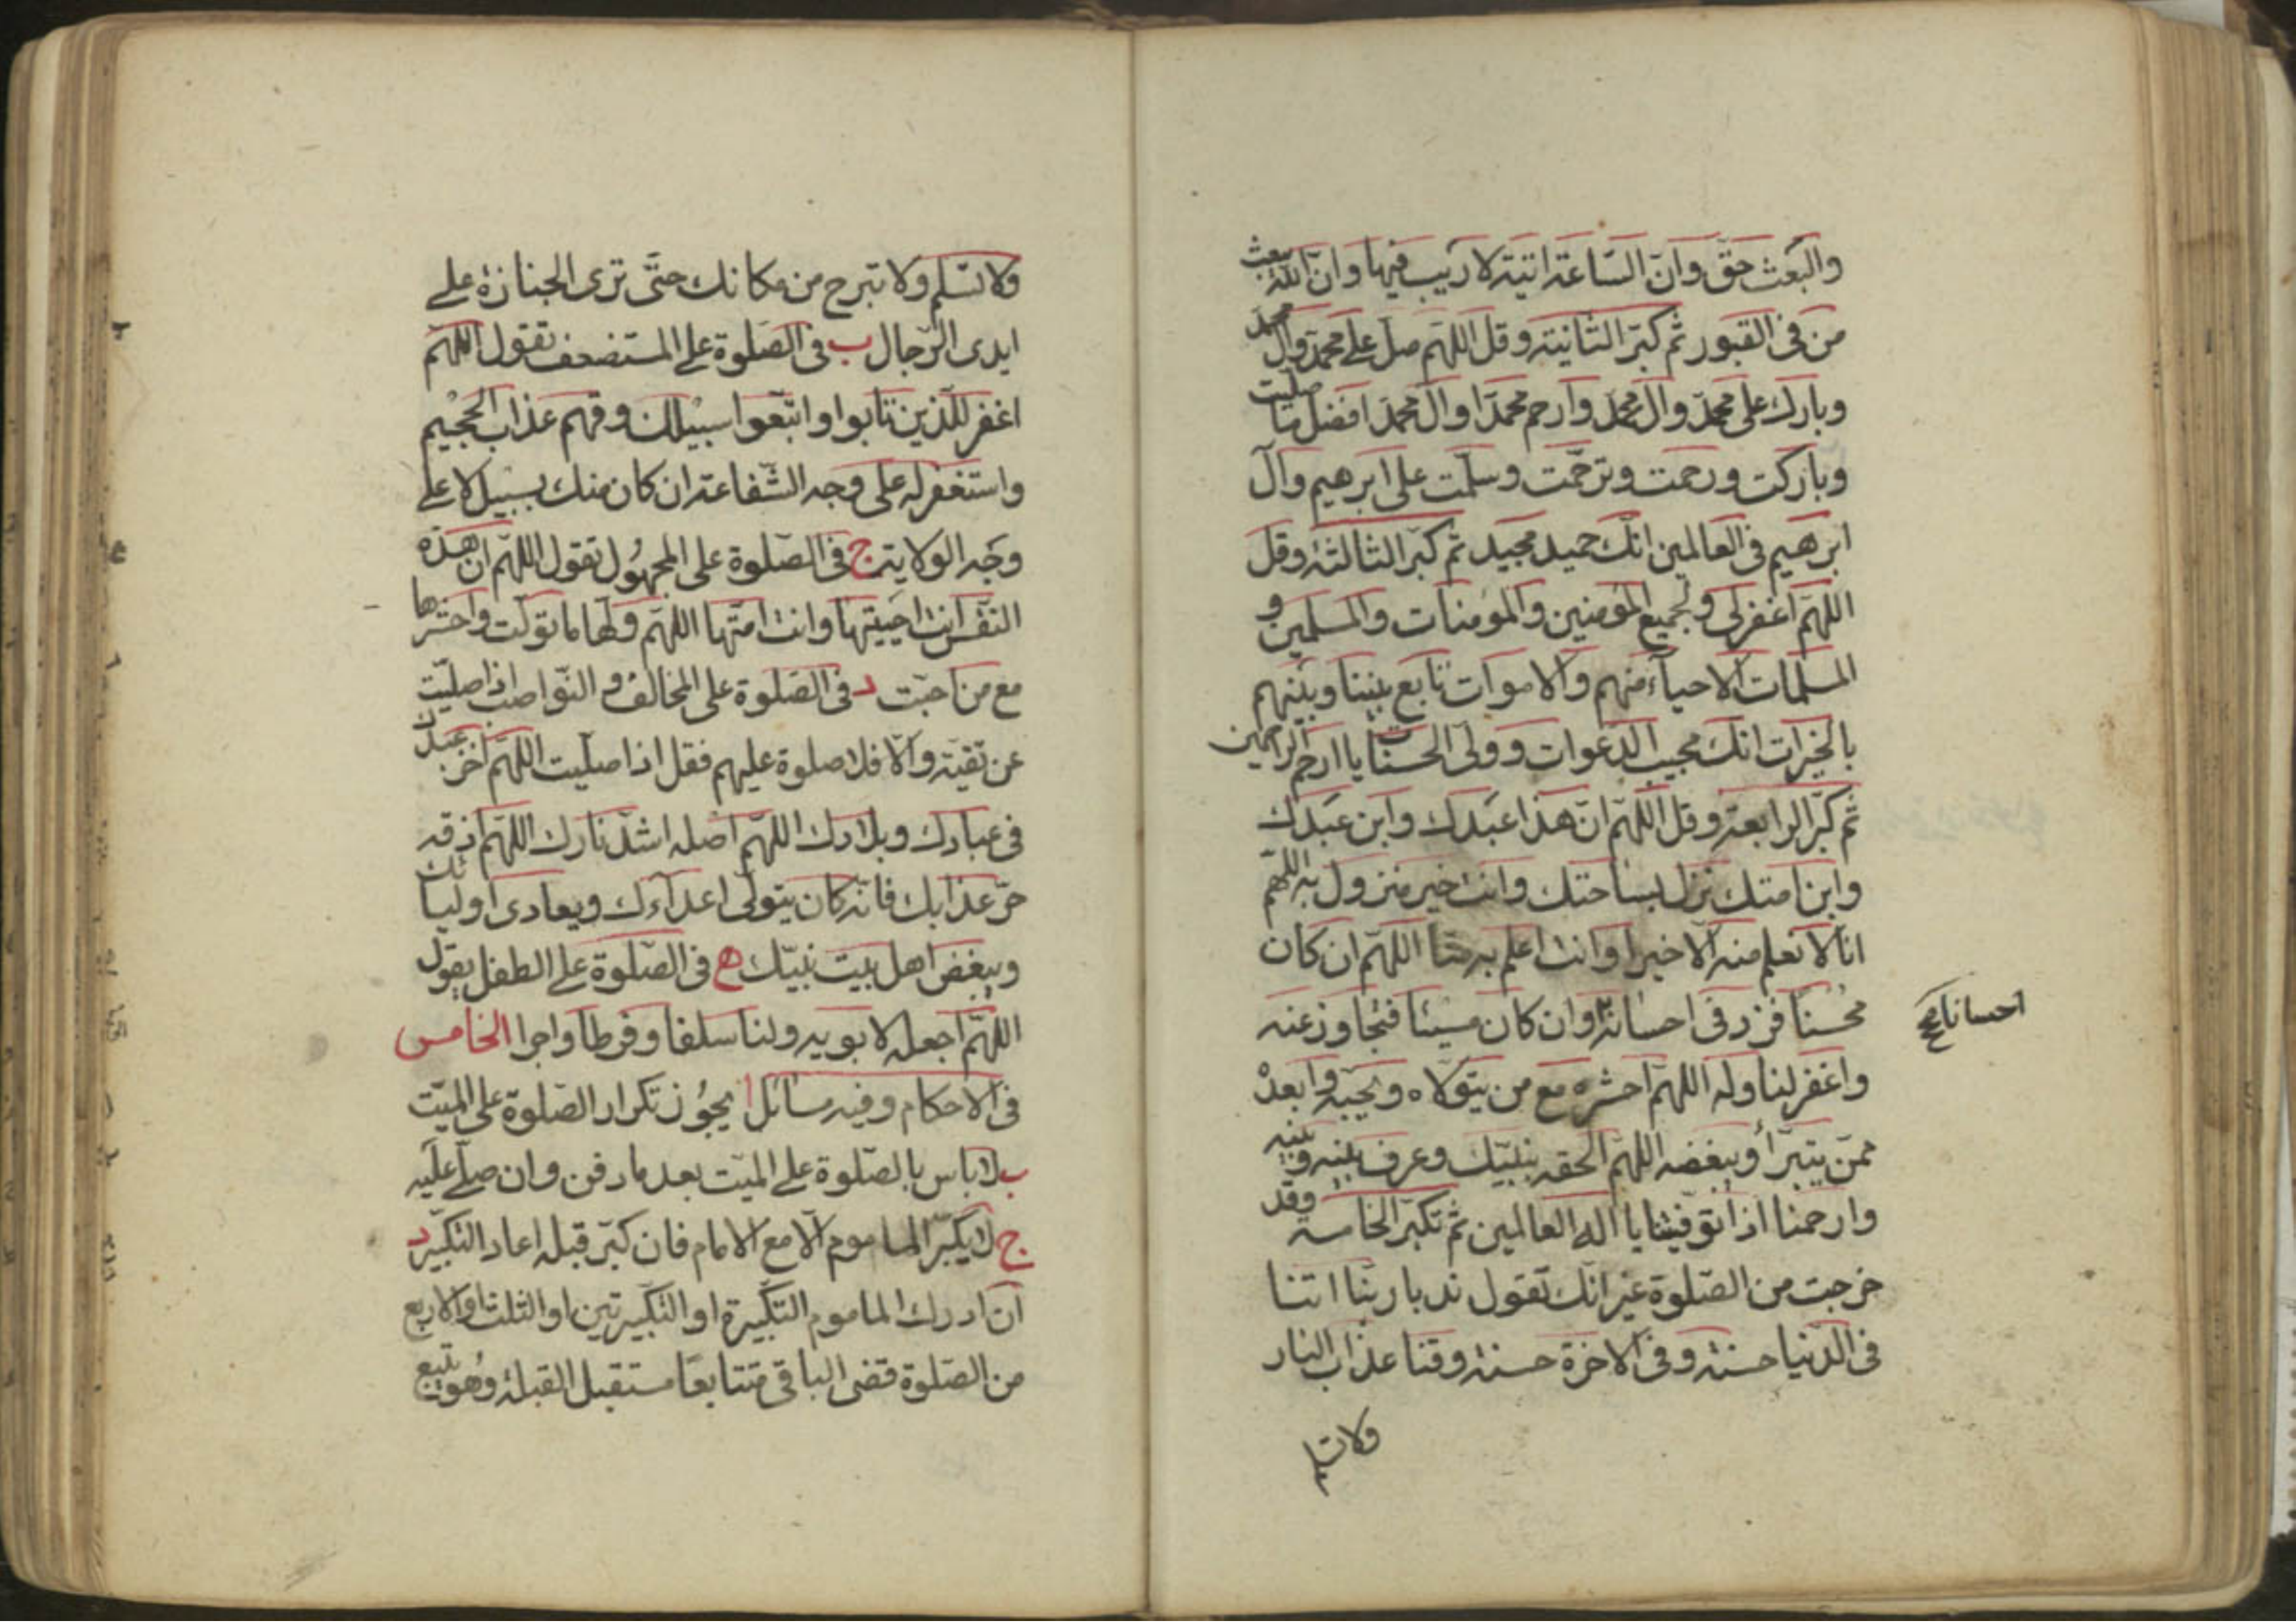 والبعث حق وانّ الساعة اتية لا ريب فيها وانّ الله يبعث
من فى القبور ثم كبّر الثانية وقل اللهم صل على محمد وال محمد
وبارك على محمد وال محمد وارحم محمدا وال محمد افضل ما صليت
وباركت ورحمت وترحّمت وسلّمت على ابرهيم وآل
ابرهيم فى العالمين انّك حميد مجيد ثم كبّر الثالثة وقل
اللهمّ اغفرلى ولجميع المؤمنين والمؤمنات والمسلمين و
المسلمات الاحياء منهم والاموات تابع بيننا وبينهم
بالخيرات انك مجيب الدعوات وولى الحسنات يا ارحم الراحمين
ثم كبّر الرابعة وقل اللهمّ انّ هذا عبدك وابن عبدك
وابن امتك نزل بساحتك وانت خير منزول به اللهم
انا لا نعلم منه الّا خيرا وانت اعلم به منا اللهمّ ان كان
محسنا فزد فى احسانه وان كان مسيئا فتجاوز عنه
احسانا صح
واغفر لنا وله اللهمّ احشره مع من يتولاه ويحبه وابعدْ
ممّن يتبرّأ ويبغضه اللهمّ الحقه بنبيّك وعرف بينه وبينه
وارحمنا اذا توفيتنا يا اله العالمين ثم تكبّر الخامسة وقد
خرجت من الصّلوة غير انّك تقول ندبا ربنا اتنا
فى الدّنيا حسنة وفى الاخرة حسنة وقنا عذاب النار
ولا تسلم
ولا تسلم ولا تبرح من مكانك حتّى ترى الجنازة على
ايدى الرّجال ب فى الصّلوة على المستضعف تقول اللهمّ
اغفر للّذين تابوا واتبّعوا سبيلك وقهم عذاب الجحيم
واستغفر له على وجه الشّفاعة ان كان منك بسبيل لا على
وجه الولاية ج فى الصّلوة على المجهول تقول اللهمّ ان هذه
النّفس انت احييتها وانت امتّها اللهمّ ولّها ما تولّت واحشرها
مع من احبّت د فى الصّلوة على المخالف و النّواصب اذا صليّت
عن تقيّة والّا فلا صلوة عليهم فقل اذا صلّيت اللهمّ اخز عبدك
فى عبادك وبلادك اللهمّ اصله اشدّ نارك اللهمّ اذقه
حرّ عذابك فانّه كان يتولّى اعدآءك ويعادى اوليائك
ويبغض اهل بيت نبيّك ه فى الصّلوة على الطفل يقول
اللهمّ اجعله لابويه ولنا سلفا وفرطا واجرا الخامس
فى الاحكام وفيه مسائل ا يجوز تكرار الصّلوة على الميّت
ب لا باس بالصّلوة على الميّت بعد ما دفن وان صلّى عليه
ج لا يكبّر الماموم الّا مع الامام فان كبّر قبله اعاد التكبير د
ان ادرك الماموم التكبيرة او التكبيرتين او الثلث او الاربع
من الصّلوة قضى الباقى متتابعا مستقبل القبلة وهو تتبع